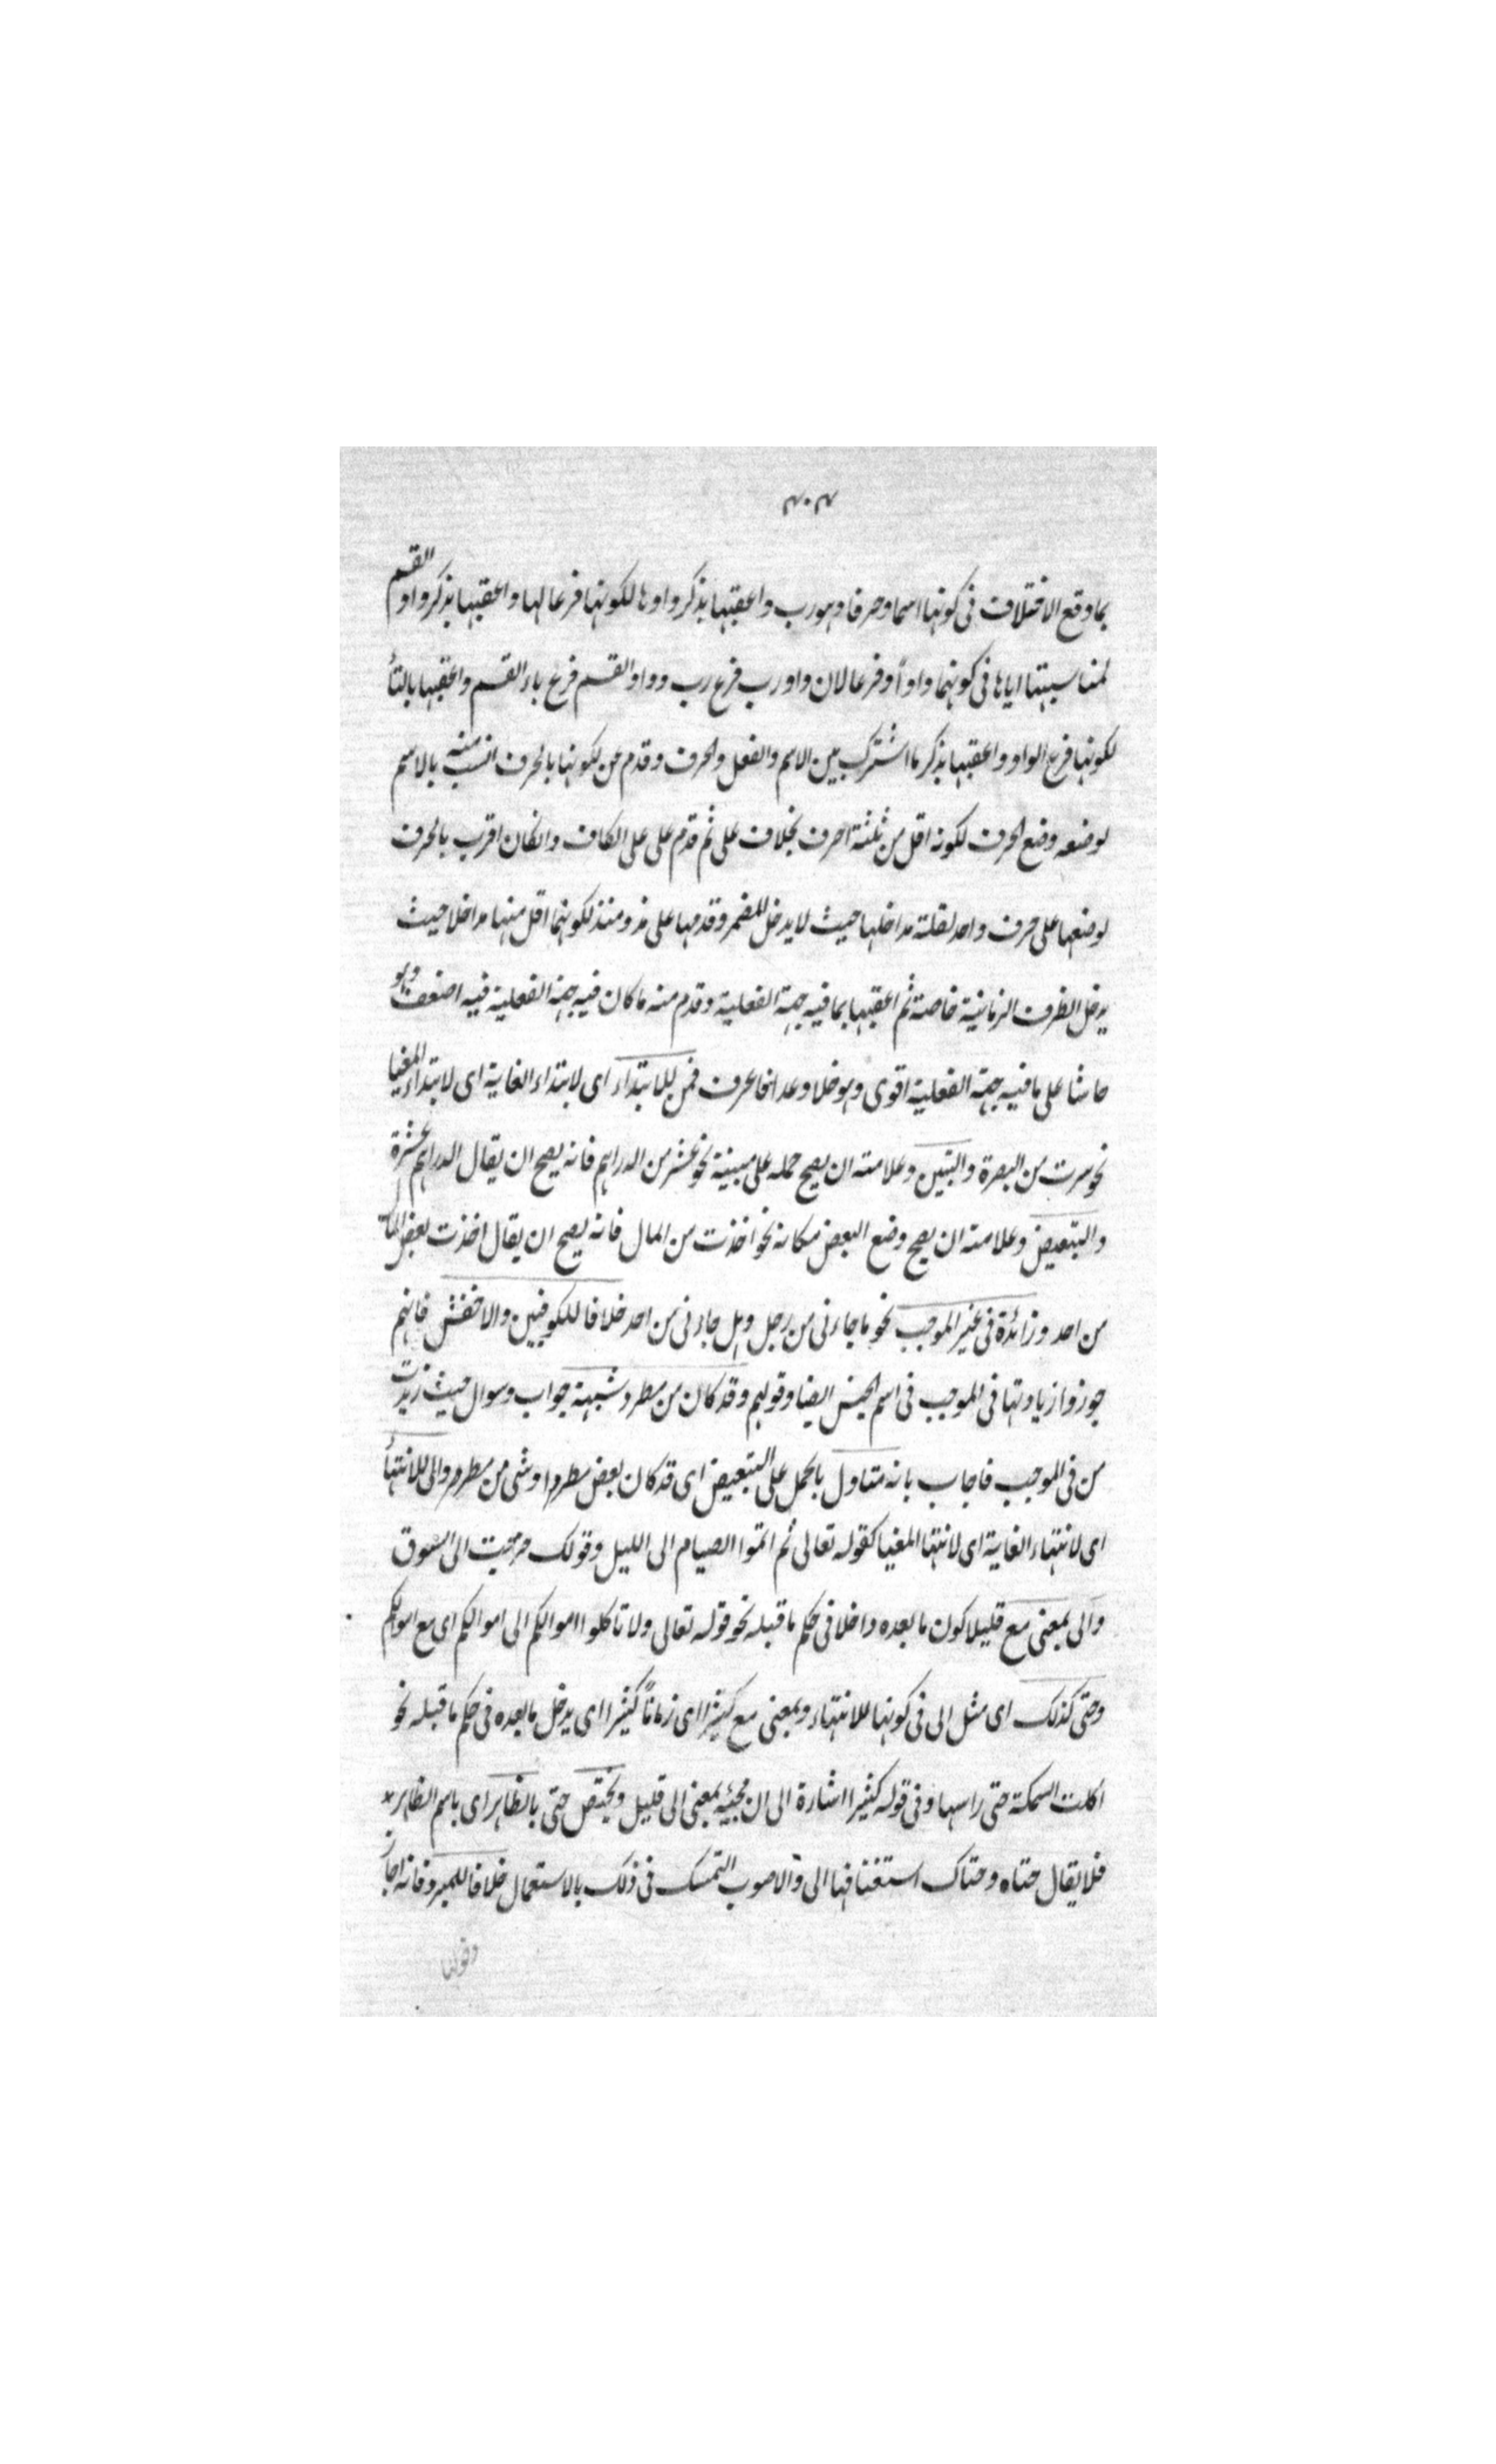 ۴۰۴
بما وقع الاختلاف فى كونها اسما وحرفا وهو رب واعقبها بذكر واوها لكونها فرعا لها واعقبها بذكر واو القسم
لمناسبتها اياها فى كونهما واواً وفرعا لان واو رب فرع رب وواو القسم فرع باء القسم واعقبها بالتأ
لكونها فرع الواو واعقبها بذكر ما اشترك بين الاسم والفعل والحرف وقدم عن لكونها بالحرف انسب منه بالاسم
لوضعه وضع الحرف لكونه اقل من ثلثة احرف بخلاف على ثم قدم على على الكاف وانكان اقرب بالحرف
لوضعها على حرف واحد لقلة مداخلها حيث لا يدخل للمضمر وقدمها على مذ ومنذ لكونهما اقل منها مداخلا حيث
يدخل الظرف الزمانية خاصة ثم اعقبها بما فيه جهة الفعلية وقدم منه ما كان فيه جهة الفعلية فيه اضعف وهو
حاشا على ما فيه جهة الفعلية اقوى وهو خلا وعدا فاعرف فمن للابتداء اى لابتداء الغاية اى لابتداء المغيا
نحو سرت من البصرة والتبيين وعلامته ان يصح حمله على مبينة نحو عشر من الدراهم فانه يصح ان يقال الدراهم عشرة
والتبعيض وعلامته ان يصح وضع البعض مكانه نحو اخذت من المال فانه يصح ان يقال اخذت بعض المال
من احد وزائدة فى غير الموجب نحو ما جاءنى من رجل وهل جاءنى من احد خلافا للكوفيين والاخفش فانهم
جوزوا زيادتها فى الموجب فى اسم الجنس ايضا وقولهم وقد كان من مطر وشبهة جواب وسوال حيث زيدت
من فى الموجب فاجاب بانه متناول بالحمل على التبعيض اى قد كان بعض مطر او شى من مطر والى للانتهأ
اى لانتهاء الغاية اى لانتها المغيا كقوله تعالى ثم اتموا الصيام الى الليل وقولك خرجت الى السوق
والى بمعنى مع قليلا كون ما بعده داخلا فى حكم ما قبله نحو قوله تعالى ولا تاكلوا اموالكم الى اموالكم اى مع اموالكم
وحتى كذلك اى مثل الى فى كونها للانتهاء وبمعنى مع كثيرا اى زماناً كثيرا اى يدخل ما بعده فى حكم ما قبله نحو
اكلت السمكة حتى راسها وفى قوله كثيرا اشارة الى ان مجيئه بمعنى الى قليل ويختص حتى بالظاهر اى باسم الظاهر
فلا يقال حتاه وحتاك استغنافها الى والاصوب التمسك فى ذلك بالاستعمال خلافا للمبرد فانه اجاز